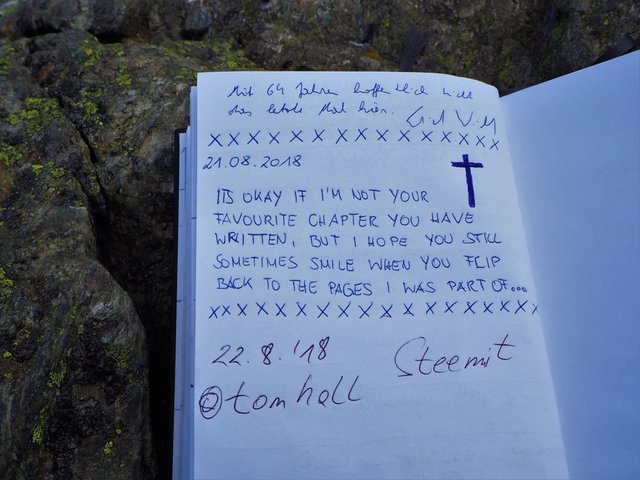 Mit 64 Jahren hoffentlich nicht
das letzte Mal hier.
XXXXXXXXXXXXXXXX
21.08.2018
ITS OKAY IF I'M NOT YOUR
FAVOURITE CHAPTER YOU HAVE
WRITTEN, BUT I HOPE YOU STILL
SOMETIMES SMILE WHEN YOU FLIP
BACK TO THE PAGES I WAS PART OF...
XXXXXXXXXXXXXXXXX
22.8.'18 Steemit
@tomhall